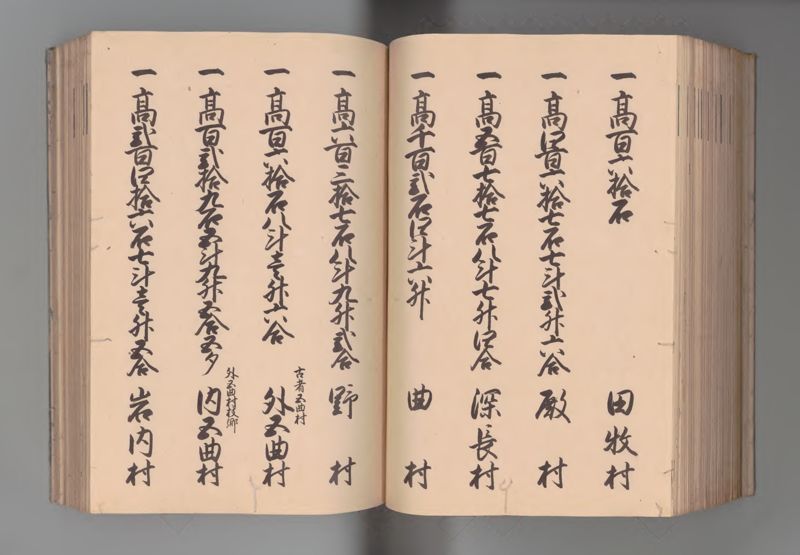 一 高百六拾石 田牧村
一 高四百六拾七石七斗弐升六合 厰村
一 高五百七拾七石八斗七升四合 深長村
一 高千百弐石四斗六升 曲村
一 高六百三拾七石八斗九升弐合 野村
古者五曲村
一 高百六拾石八斗壱升六合 外五曲村
外五曲村枝郷
一 高百弐拾九石五斗九升五合五夕 内五曲村
一 高弐百四拾六石七斗壱升五合 岩内村